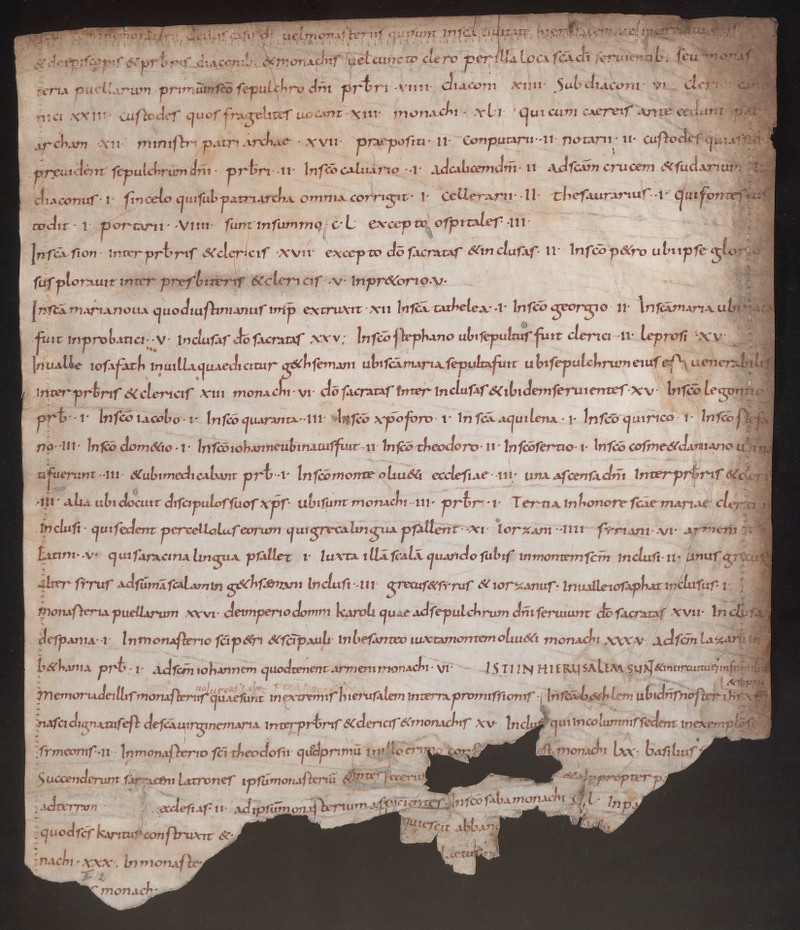 memoratorio de illis casis dī vel monasteriis qui sunt in scā civitate hierusalem vel in circuitu eius
& de episcopis & prbris diaconib; & monachis vel cuncto clero per illa loca scā dī servientib; seu monas
teria puellarum primum in scō sepulchro dnī prbri ·VIIII· diaconi XIIII Subdiaconi VI cleri cano
nici XXIII· custodes quos fragelites vocant ·XIII· monachi ·XLI· qui cum caereis ante cedunt pat
archam XII ministri patriarchae ·XVII· praepositi ·II· conputarii ·II· notarii ·II· custodes qui assid
prevident sepulchrum dnī· prbri ·II· In scō calvario ·I· ad calicem dnī· II ad scām crucem & sudarium
diaconus ·I· sincelo qui sub patriarcha omnia corrigit ·I· cellerarii ·II· thesaurarius ·I· qui fontes cus
todit ·I· portarii ·VIIII· sunt in summa ·C·L· excepto ospitales ·III·
In scā sion inter prbris & clericis ·XVII· excepto dō sacratas & inclusas ·II· In scō p&ro ubi ipse glorio
sus ploravit inter presbiteris & clericis ·V· In pr&orio ·V·
In scā maria nova quod iustinianus imp̄ extruxit ·XII In scā tathelea ·I· In scō georgio ·II· In scā maria ubi nata
fuit in probatici ·V· inclusas dō sacratas XXV; In scō stephano ubi sepultus fuit clerici ·II· leprosi ·XV·
In valle iosafath in villa quae dicitur g&hsemani ubi scā maria sepulta fuit ubi sepulchrum eius est venerabilis
inter prbris & clericis XIII monachi ·VI· dō sacratas inter inclusas & ibidem servientes ·XV· In scō legontio
prb· I· In scō iacobo ·I· In scō quaranta ·III· In scō xpoforo ·I· In scā aquilena ·I· In scō quirico ·I· In scō stefa
no ·III· In scō dom&io ·I· In scō iohanne ubi natus fuit ·II· In scō theodoro ·II· In scō sertio ·I· In scō cosme & damiano ubi na
ti fuerunt ·III· & ubi medicabant prb· I· In scō monte oliu&i ecclesiae ·III· una ascensa dnī inter prbris & cleri
·III· alia ubi docuit discipulos suos xp̄s· ubi sunt monachi ·III· prbr ·I· Tertia in honore scāe mariae clerici
inclusi qui sedent per cellolus eorum qui greca lingua psallent ·XI· iorzani ·IIII· syriani ·VI· armeni
latini ·V· qui saracina lingua psallet ·I· Iuxta illā scalā quando subis in montem scm̄ inclusi ·II· unus grecus
alter syrus ad sūmā scalam in g&hsaemani Inclusi ·III· grecus & syrus & iorzanus· In valle iosaphat inclusus ·I·
monasteria puellarum XXVI· de imperio domni karoli quae ad sepulchrum dnī serviunt dō sacratas XVII· Inclusa
de spania ·I· In monasterio scī p&ri & scī pauli in besanteo iuxta montem oliu&i monachi XXXV· ad scm̄ lazarum in
b&hania prb· I· ad scm̄ iohannem quod tenent armeni monachi ·VI· ISTI IN HIERUSALEM SUN̄
memoria de illis monasteriis quae sunt in extremis hierusalem in terra promissionis· In scā b&hlem ubi dn̄s noster
nasci dignatus est de scā virgine maria inter prbris & clericis & monachis XV· Inclusi qui in columnis sedent in exemplo scī
symeonis ·II· In monasterio scī theodosii quod primū in illo eremo monachi LXX· basilius
Succenderunt sarraceni latrones ipsū monasteriū & inter & propter
ad terram ecclesias ·II· ad ipsū monasterium aspicientes In scō saba monachi CL·
quod scs karitus construxit & quiescit abban
nachi ·XXX· In monaste
monach·